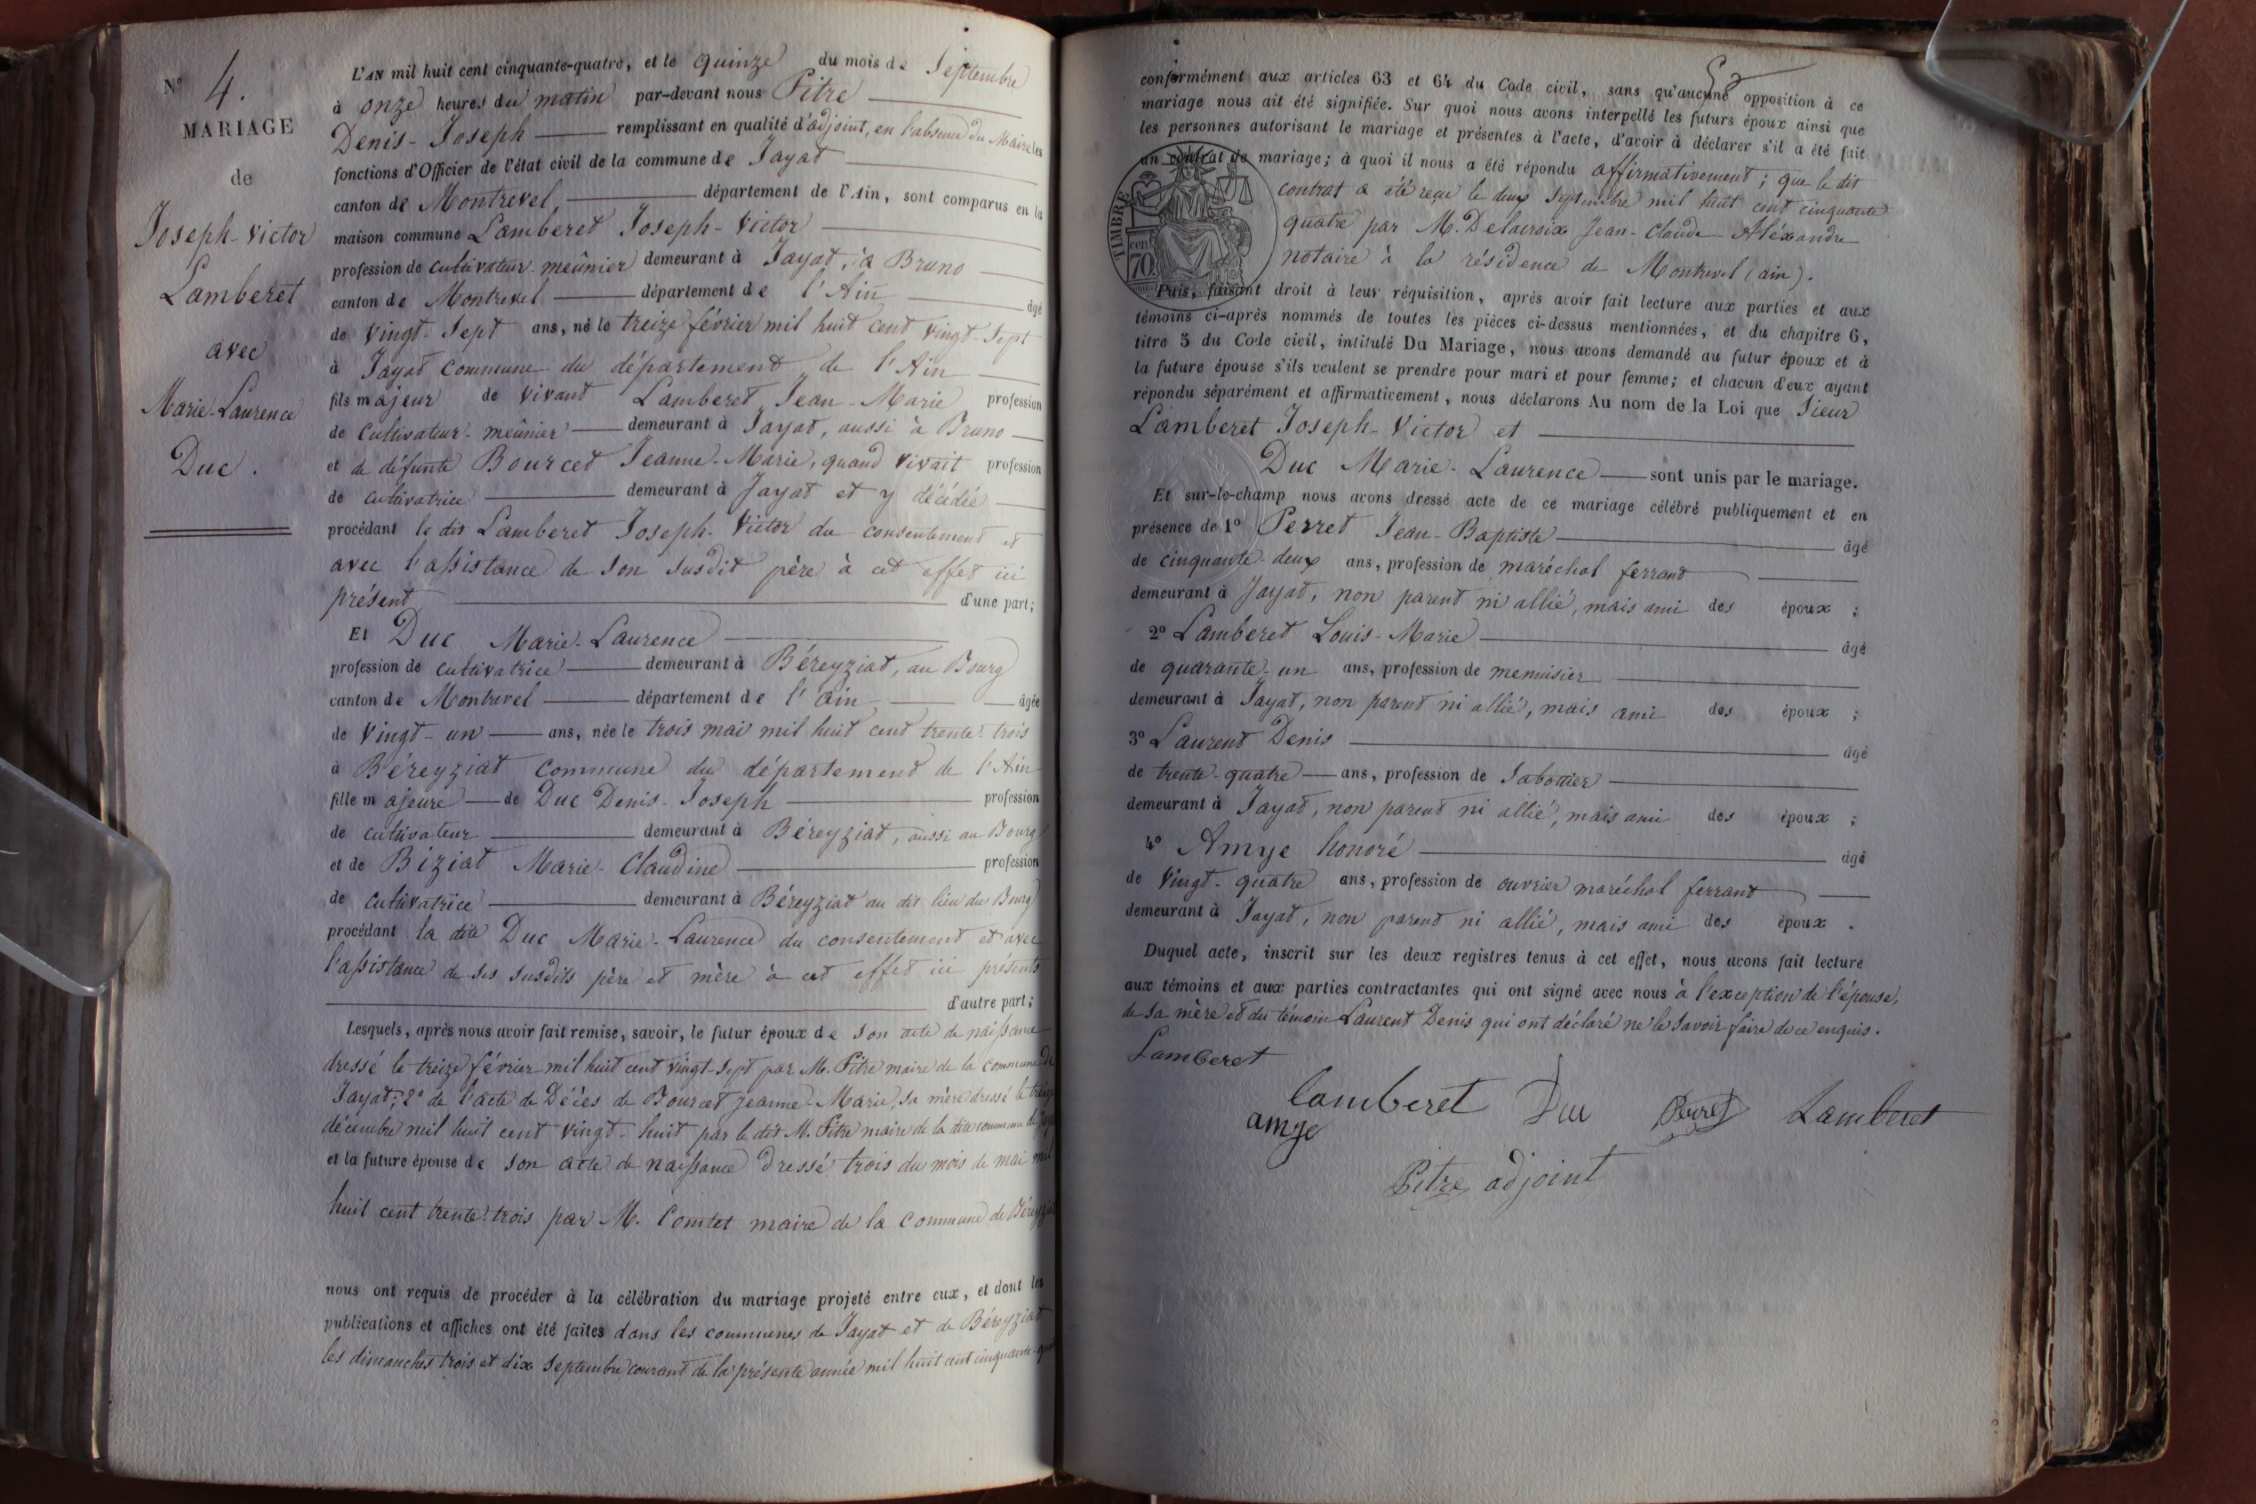 N° 4.
MARIAGE
de
Joseph-Victor
Lamberet
avec
Marie-Laurence
Duc.
L'AN mil huit cent cinquante-quatre, et le quinze du mois de Septembre
à onze heures du matin par-devant nous Pitre
Denis-Joseph remplissant en qualité d'adjoint, en l'absence du Maire les
fonctions d'Officier de l'état civil de la commune de Jayat
canton de Montrevel, département de l'Ain, sont comparus en la
maison commune Lamberet Joseph-Victor
profession de cultivateur-meûnier demeurant à Jayat, à Bruno
canton de Montrevel département de l'Ain âgé
de vingt-sept ans, né le treize février mil huit cent vingt-sept
à Jayat commune du département de l'Ain
fils majeur de vivant Lamberet Jean-Marie profession
de cultivateur-meûnier demeurant à Jayat, aussi à Bruno
et de défunte Bourcet Jeanne-Marie, quand vivait profession
de cultivatrice demeurant à Jayat et y décédée
procédant le dit Lamberet Joseph-Victor du consentement et
avec l'assistance de son susdit père à cet effet ici
présent d'une part;
Et Duc Marie-Laurence
profession de cultivatrice demeurant à Béreyziat, au Bourg
canton de Montrevel département de l'ain âgée
de vingt-un ans, née le trois mai mil huit cent trente-trois
à Béreyziat commune du département de l'Ain
fille majeure de Duc Denis-Joseph profession
de cultivateur demeurant à Béreyziat, aussi au Bourg
et de Béziat Marie-Claudine profession
de cultivatrice demeurant à Béreyziat au dit lieu du Bourg
procédant la dite Duc Marie-Laurence du consentement et avec
l'assistance de ses susdits père et mère à cet effet ici présents
d'autre part;
Lesquels, après nous avoir fait remise, savoir, le futur époux de son acte de naissance
dressé le treize février mil huit cent vingt-sept par M. Pitre maire de la commune de
Jayat; 2° de l'acte de Décès de Bourcet jeanne-Marie, sa mère dressé le
décembre mil huit cent vingt-huit par le dit M. Pitre maire de la dite commune de
et la future épouse de son acte de naissance dressé trois du mois de mai mil
huit cent trente-trois par M. Comtet maire de la commune de Béreyziat
nous ont requis de procéder à la célébration du mariage projeté entre eux, et dont les
publications et affiches ont été faites dans les communes de Jayat et de Béreyziat
les dimanches trois et dix septembre courant de la présente année mil huit cent cinquante-quatre
conformément aux articles 63 et 64 du Code civil, sans qu'aucune opposition à ce
mariage nous ait été signifiée. Sur quoi nous avons interpellé les futurs époux ainsi que
les personnes autorisant le mariage et présentes à l'acte, d'avoir à déclarer s'il a été fait
un contrat de mariage; à quoi il nous a été répondu affirmativement; que le dit
contrat a été reçu le deux septembre mil huit cent cinquante
quatre par M. Delacroix Jean-Claude-Aléxandre
notaire à la résidence de Montrevel (ain).
TIMBRE
cen
70
Puis, faisant droit à leur réquisition, après avoir fait lecture aux parties et aux
témoins ci-après nommés de toutes les pièces ci-dessus mentionnées, et du chapitre 6,
titre 5 du Code civil, intitulé Du Mariage, nous avons demandé au futur époux et à
la future épouse s'ils veulent se prendre pour mari et pour femme; et chacun d'eux ayant
répondu séparément et affirmativement, nous déclarons Au nom de la Loi que Sieur
Lamberet Joseph-Victor et
Duc Marie-Laurence sont unis par le mariage.
Et sur-le-champ nous avons dressé acte de ce mariage célébré publiquement et en
présence de 1° Perret Jean-Baptiste âgé
de cinquante-deux ans, profession de maréchal ferrant
demeurant à Jayat, non parent ni allié, mais ami des époux ;
2° Lamberet Louis-Marie âgé
de quarante-un ans, profession de menuisier
demeurant à Jayat, non parent ni allié, mais ami des époux ;
3° Laurent Denis âgé
de trente-quatre ans, profession de Sabottier
demeurant à Jayat, non parent ni allié, mais ami des époux ;
4° Amye honoré âgé
de vingt-quatre ans, profession de ouvrier maréchal ferrant
demeurant à Jayat, non parent ni allié, mais ami des époux .
Duquel acte, inscrit sur les deux registres tenus à cet effet, nous avons fait lecture
aux témoins et aux parties contractantes qui ont signé avec nous à l'exception de l'épouse,
de sa mère et du témoin Laurent Denis qui ont déclaré ne le savoir faire de ce enquis.
Lamberet
Lamberet Duc Perret Lamberet
amye
Pitre adjoint